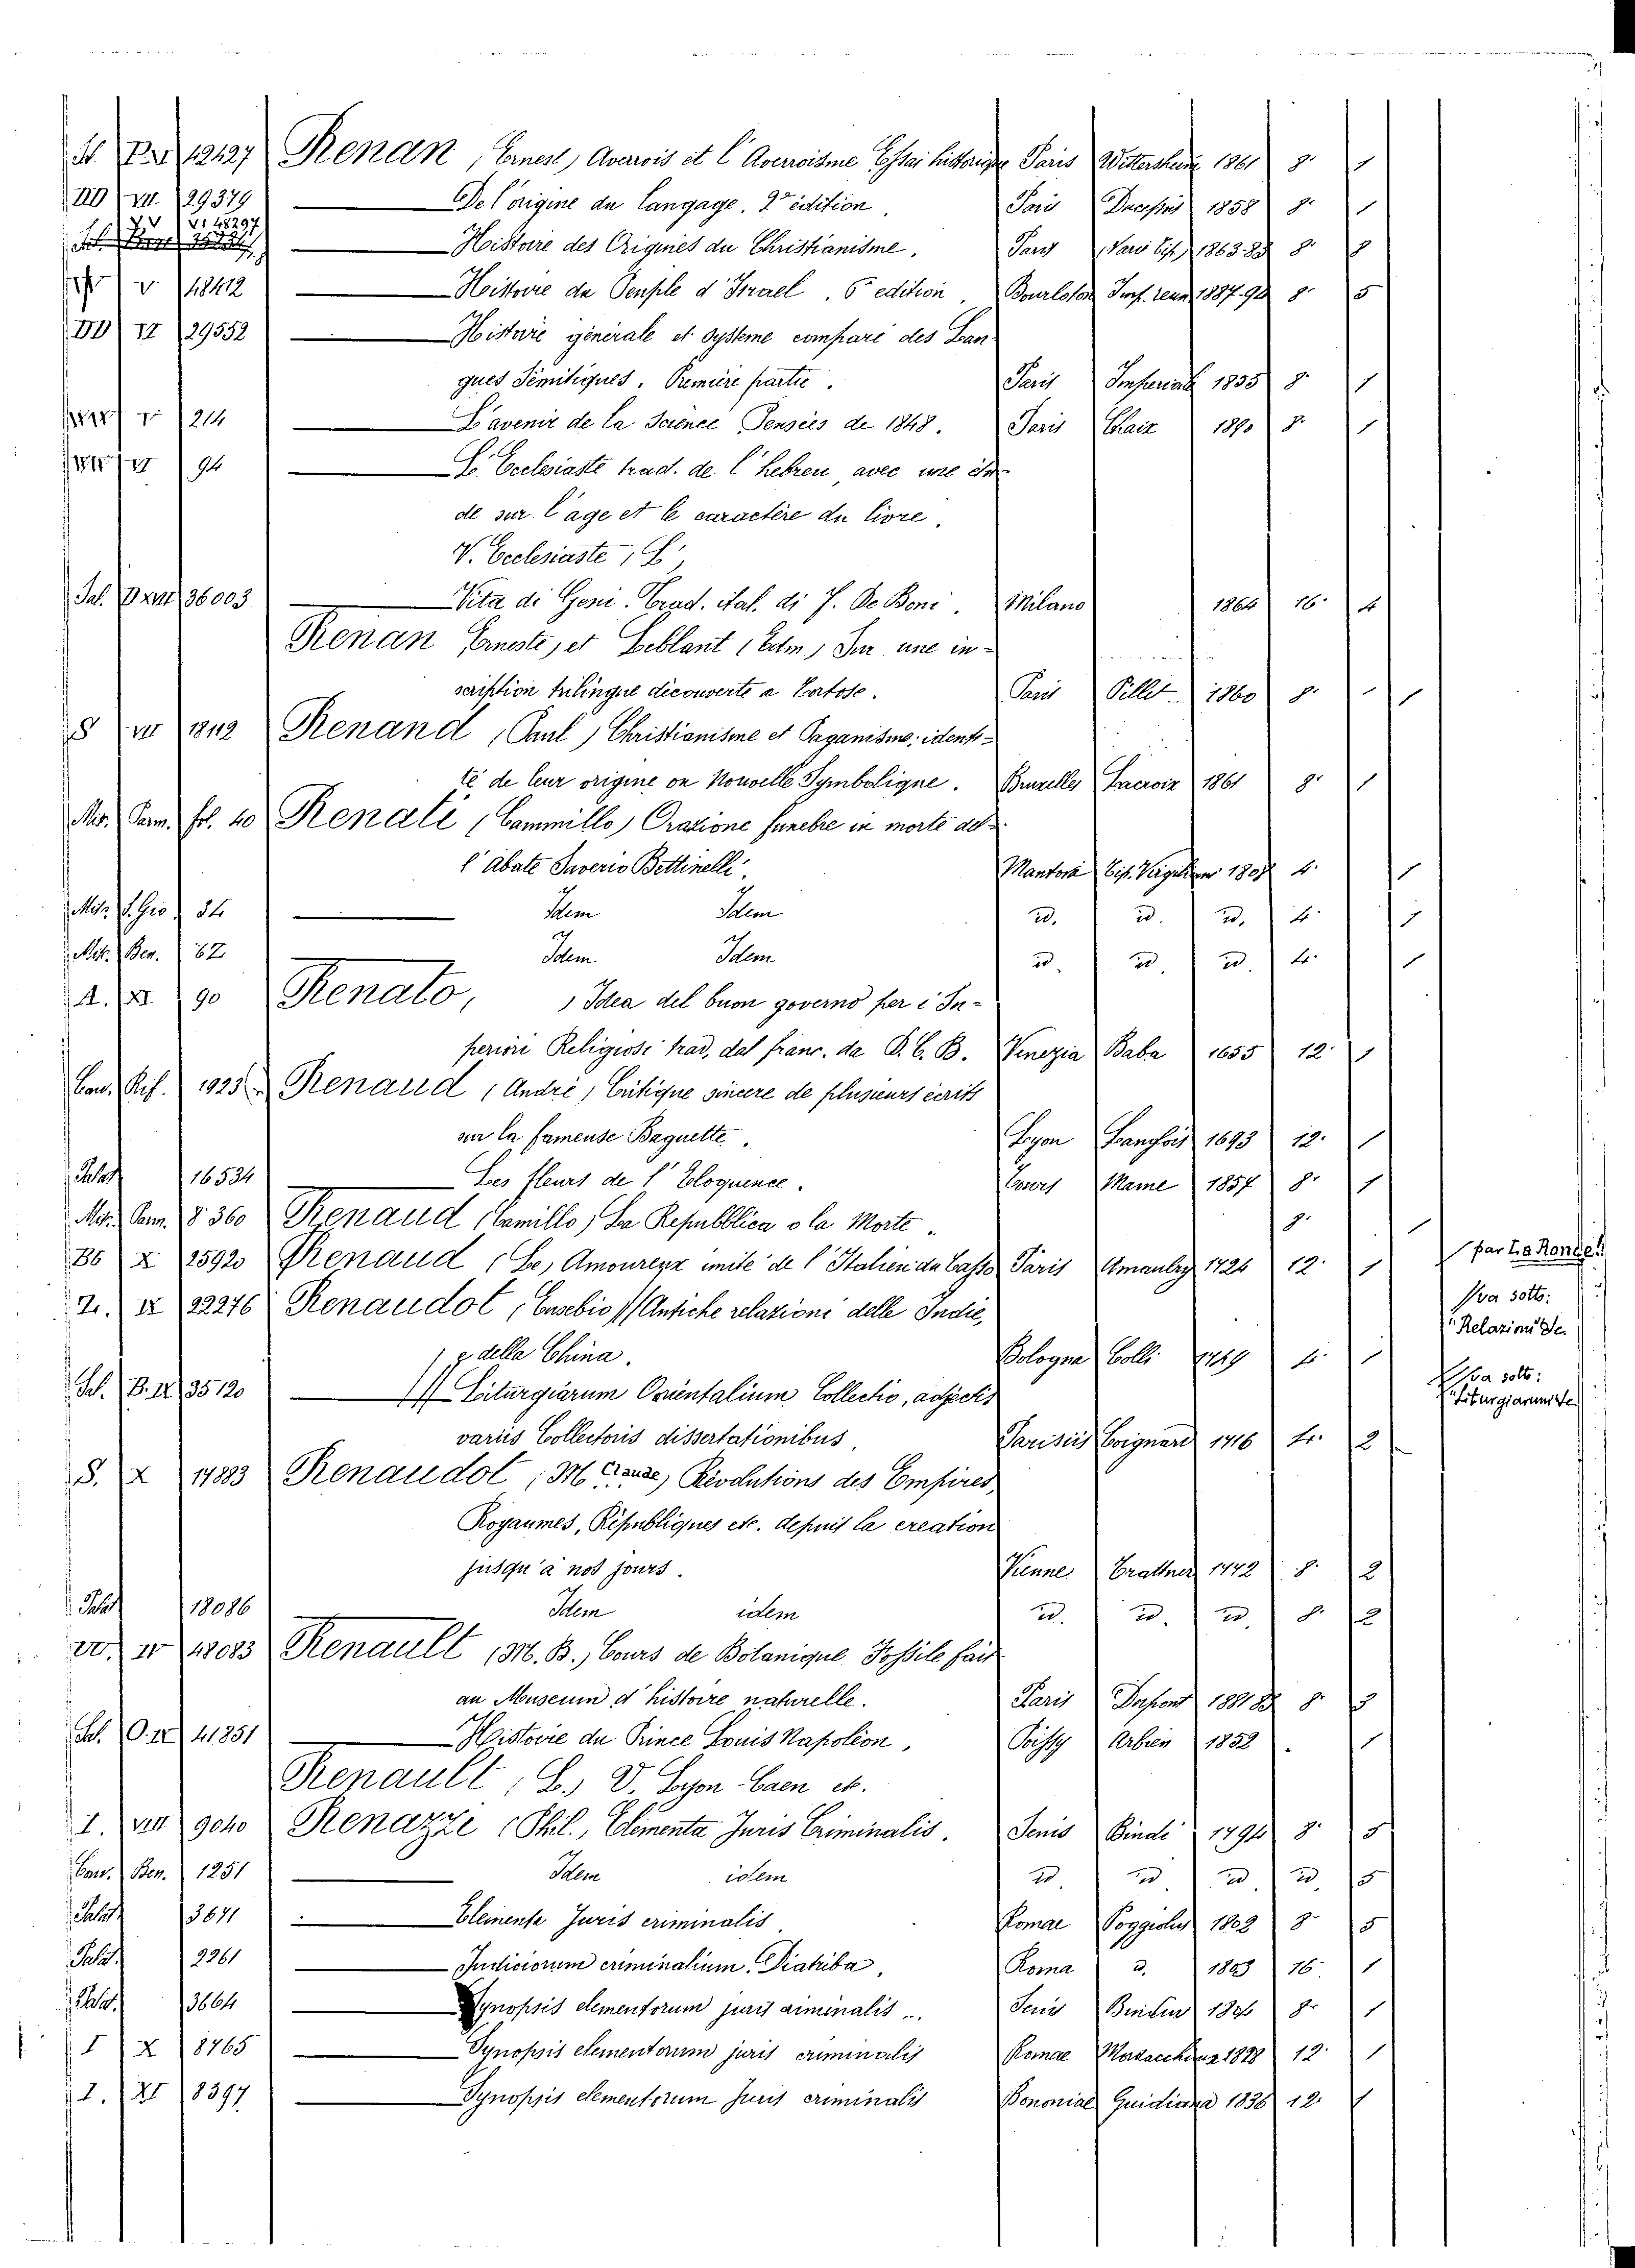 12127 Renan, Ernest, Averois et l'Averroisme Essai historique Paris 1861 8. 1
DD VII. 29379 De l'origine du langage. 2e édition. 1858 8. 1
VV VI 48297 Histoire des Origines du Christianisme. 1863-83 8. 8
V 48412 Histoire du Peuple d'Israel. 6e edition. Bourloton 1887-94 8. 5
DD VI 29552 Histoire générale et systeme comparé des Lan-
gues Sémitiques. Première partie. Paris Imperiale 1855 8. 1
214 L'avenir de la Science Pensées de 1848. Paris Chaix 1890 8. 1
94 L'Ecclesiaste trad. de l'hebreu avec une étu-
de sur l'age et le caractère du livre.
V. Ecclesiaste, L',
Sal. D XVII 36003 Vita di Gesù. Trad. ital. di F. De Boni. Milano 1864 16. 4
Renan Erneste, et Leblant, Edm, Sur une in-
scription trilingue découverte a Tortose. Paris Pillet 1860 8. 1
S VII 1842 Renand, Paul, Christianisme et Paganisme: identi-
té de leur origine ou Nouvelle Symbolique. Bruxelles Lacroix 1861 8. 1
Mis. Cam. fol. 40 Renati, Cammillo, Orazione funebre in morte del-
l'Abate Saverio Bettinelli. Mantova Tip. Virgiliana 4. 1
Mis. S. Gio 34 Idem Idem id. id. id. 4. 1
Mis. Ben. 62 Idem Idem id. id. id. 4. 1
A. XI. 90 Renato, Idea del buon governo per i Su-
periori Religiosi trad. dal franc. da P. C. B. Venezia Baba 1655 12. 1
Can. Rif. 1923 Renaud, André, Critique sincere de plusieurs écrits
sur la fameuse Baguette. Lyon Langlois 1693 12. 1
Palat 16534 Les fleurs de l'Eloquence. Tours Mame 1857 8. 1
Mis. Cam. 8° 360 Renaud Camillo, La Repubblica o la Morte. 8.
BB X 25920 Renaud, Le, Amoureux imité de l'Italien du Tasse Paris Amaulry 1724 12. 1
par La Ronde!
Z. IX 22276 Renaudot, Eusebio // Antiche relazioni delle Indie,
Va sotto:
"Relazioni de.
e della China. Bologna Colli 1749 4. 1
Va sotto:
"Liturgiarum de.
Sal. B. IX 35120 // Liturgiarum Orientalium Collectio, adjectis
variis Collectoris dissertationibus. Parisiis Coignard 1716 4. 2
S. X 14883 Renaudot, M. Claude, Révolutions des Empires,
Royaumes, Républiques etc. depuis la creation
jusqu'à nos jours. Vienne Trattner 1772 8. 2
Palat 18086 Idem idem id. id. id. 8. 2
IV 48083 Renault, M. B., Cours de Botanique Fossile fait
au Museum d'histoire naturelle. Paris 8. 3
Sal. O. IX 41851 Histoire du Prince Louis Napoléon. Poissy Arbieu 1852. 1
Renault, L., V. Lyon-Caen etc.
I. VIII 9040 Renazzi, Phil., Elementa Juris Criminalis. Senis Bindi 1794 8. 5
Can. Ben. 1251 Idem idem id. id. id. id. 5
Palat. 3671 Elementa Juris criminalis. Romae Poggiolus 1802 8. 5
Palat. 2261 Judiciorum criminalium. Diatriba. Roma 16. 1
Palat. 3664 Synopsis elementorum juris criminalis. Senis 8. 1
I X 8765 Synopsis elementorum juris criminalis Romae 1828 12. 1
I. XI 8597 Synopsis elementorum Juris criminalis Bononiae Guidiana 1836 12. 1